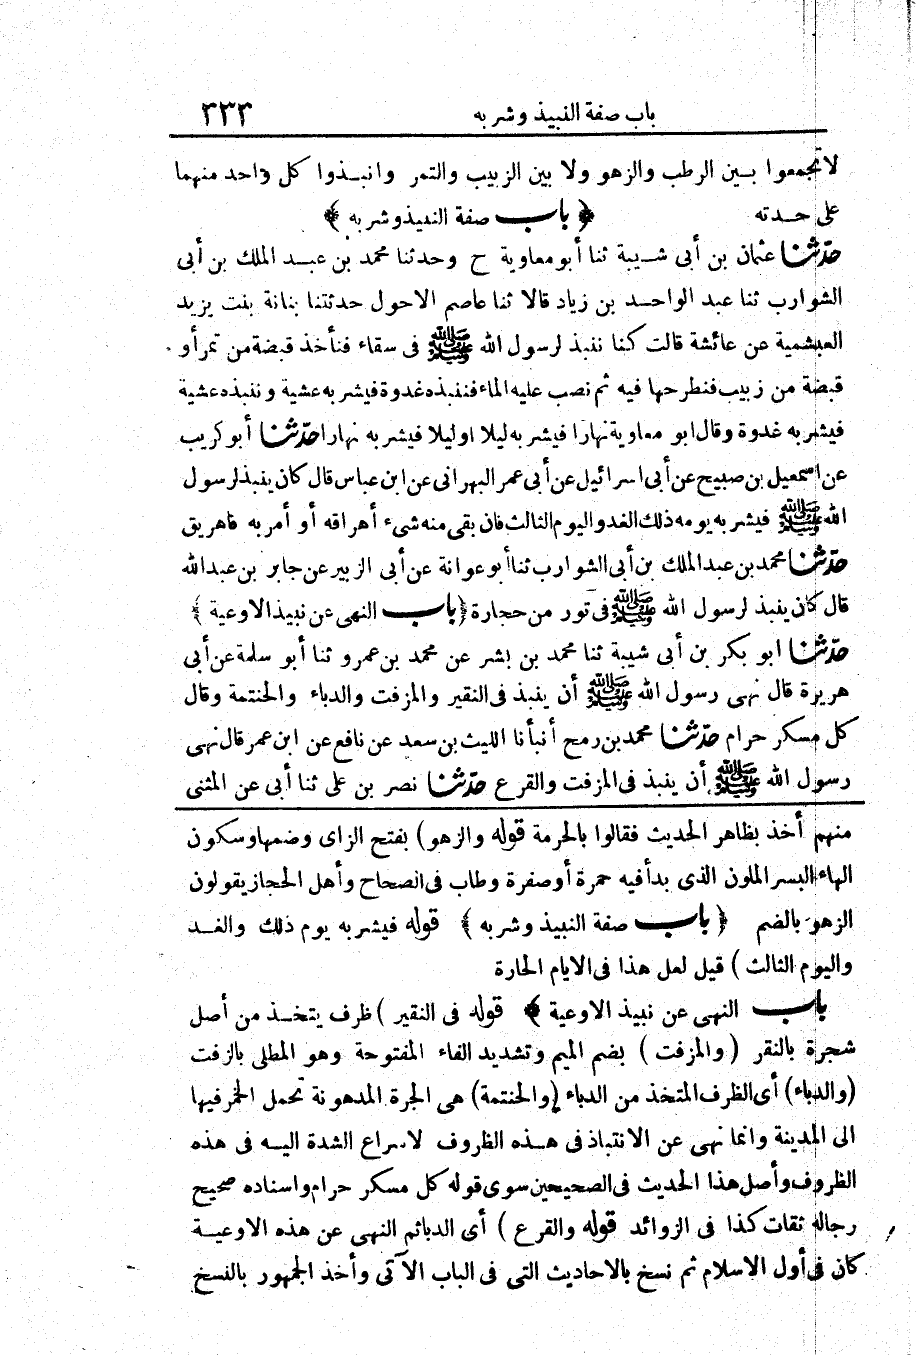 باب صفة النبيذ وشربه ٣٣٣
لا تجمعوا بين الرطب والزهو ولا بين الزبيب والتمر وانبذوا كل واحد منهما
على حدته ﴿ باب صفة النبيذ وشربه ﴾
حدّثنا عثمان بن أبى شيبة ثنا أبو معاوية ح وحدثنا محمد بن عبد الملك بن أبى
الشوارب ثنا عبد الواحد بن زياد قالا ثنا عاصم الاحول حدثتنا بنانة بنت يزيد
العبشمية عن عائشة قالت كنا ننبذ لرسول الله ﷺ فى سقاء فنأخذ قبضة من تمر أو
قبضة من زبيب فنطرحها فيه ثم نصب عليه الماء فننبذه غدوة فيشربه عشية وننبذه عشية
فيشربه غدوة وقال ابو معاوية نهارا فيشربه ليلا او ليلا فيشربه نهارا حدّثنا أبو كريب
عن اسمعيل بن صبيح عن أبى اسرائيل عن أبى عمر البهرانى عن ابن عباس قال كان ينبذ لرسول
الله ﷺ فيشربه يومه ذلك والغد واليوم الثالث فان بقى منه شىء أهراقه أو أمر به فاهريق
حدّثنا محمد بن عبد الملك بن أبى الشوارب ثنا أبو عوانة عن أبى الزبير عن جابر بن عبد الله
قال كان ينبذ لرسول الله ﷺ فى تور من حجارة ﴿ باب النهى عن نبيذ الاوعية ﴾
حدّثنا ابو بكر بن أبى شيبة ثنا محمد بن بشر عن محمد بن عمرو ثنا أبو سلمة عن أبى
هريرة قال نهى رسول الله ﷺ أن ينبذ فى النقير والمزفت والدباء والحنتمة وقال
كل مسكر حرام حدّثنا محمد بن رمح أنبأنا الليث بن سعد عن نافع عن ابن عمر قال نهى
رسول الله ﷺ أن ينبذ فى المزفت والقرع حدّثنا نصر بن على ثنا أبى عن المثنى
منهم أخذ بظاهر الحديث فقالوا بالحرمة قوله والزهو ) بفتح الزاى وضمها وسكون
الهاء البسر الملون الذى بدأ فيه حمرة أو صفرة وطاب فى الصحاح وأهل الحجاز يقولون
الزهو بالضم ﴿ باب صفة النبيذ وشربه ﴾ قوله فيشربه يوم ذلك والغد
واليوم الثالث ) قيل لعل هذا فى الايام الحارة
باب النهى عن نبيذ الاوعية ﴾ قوله فى النقير ) ظرف يتخذ من أصل
شجرة بالنقر ( والمزفت ) بضم الميم وتشديد الفاء المفتوحة وهو المطلى بالزفت
(والدباء) أى الظرف المتخذ من الدباء (والحنتمة) هى الجرة المدهونة تحمل الخمر فيها
الى المدينة وانما نهى عن الانتباذ فى هذه الظروف لاسراع الشدة اليه فى هذه
الظروف وأصل هذا الحديث فى الصحيحين سوى قوله كل مسكر حرام واسناده صحيح
رجاله ثقات كذا فى الزوائد قوله والقرع ) أى الدبائم النهى عن هذه الاوعية
كان فى أول الاسلام ثم نسخ بالاحاديث التى فى الباب الآتى وأخذ الجمهور بالنسخ